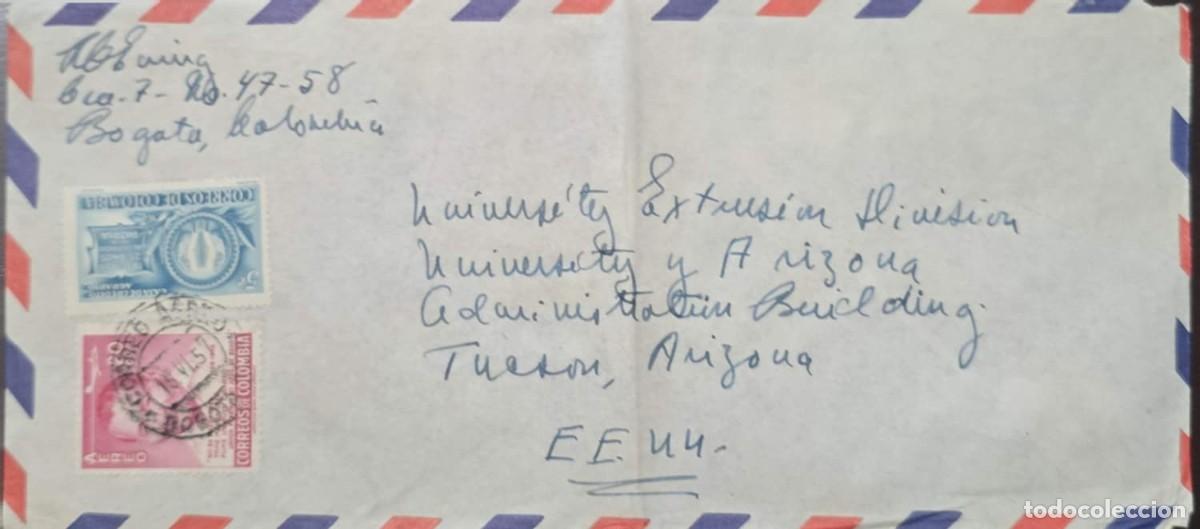 Cra-7- No. 47-58
Bogota, Colombia
University Extension Division
University of Arizona
Administration Building.
Tucson, Arizona
EE.UU.
CORREOS DE COLOMBIA
5c
CORREO AEREO
18 VI 57
BOGOTA
20
AEREO
CORREOS DE COLOMBIA
todocoleccion